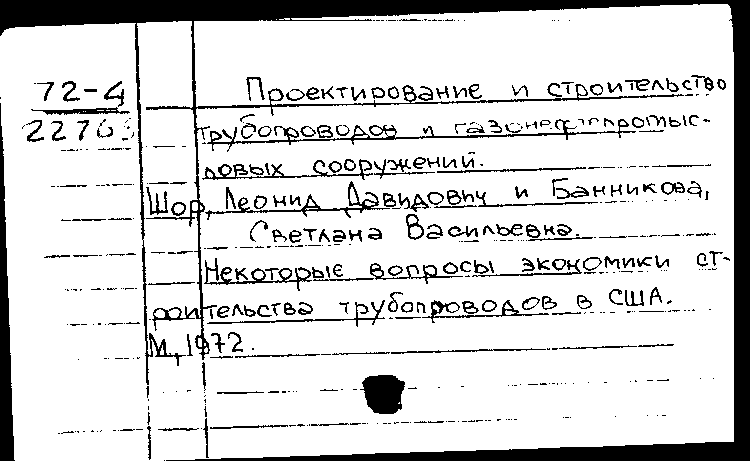 72-4
Проектирование и строительство
трубопроводов и газонефтепромыс-
ловых сооружений.
Шор, Леонид Давидович и Банникова,
Светлана Васильевна.
Некоторые вопросы экономики ст-
роительства трубопроводов в США.
М, 1972.